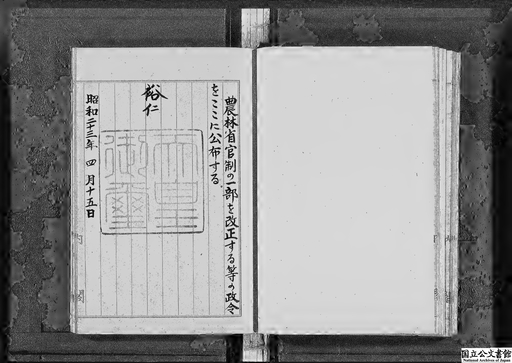 農林省官制の一部を改正する等の政令
をここに公布する
裕仁
天皇
御璽
昭和二十三年 四月十五日
内閣
国立公文書館
National Archives of Japan